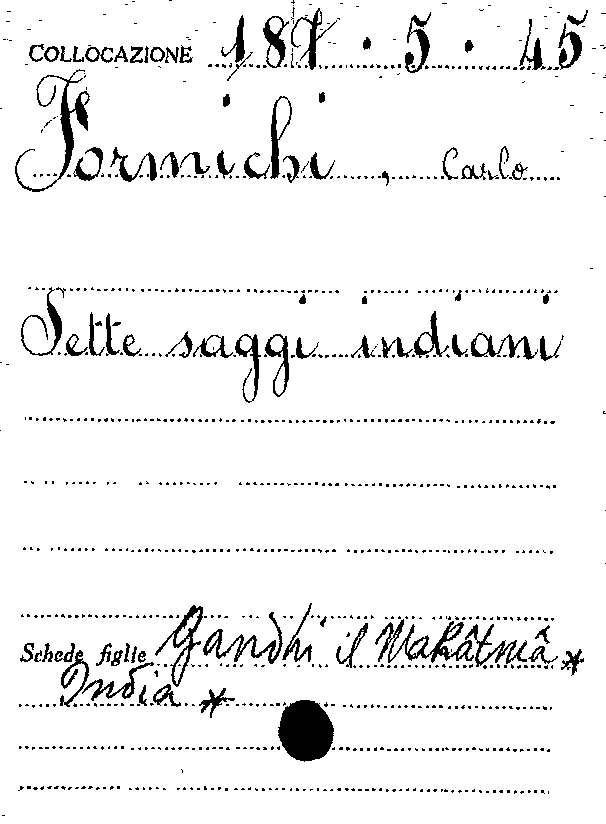 COLLOCAZIONE 187 . 5 . 45
Formichi, Carlo
Sette saggi indiani
Schede figlie Gandhi il Mahâtmâ *
India *